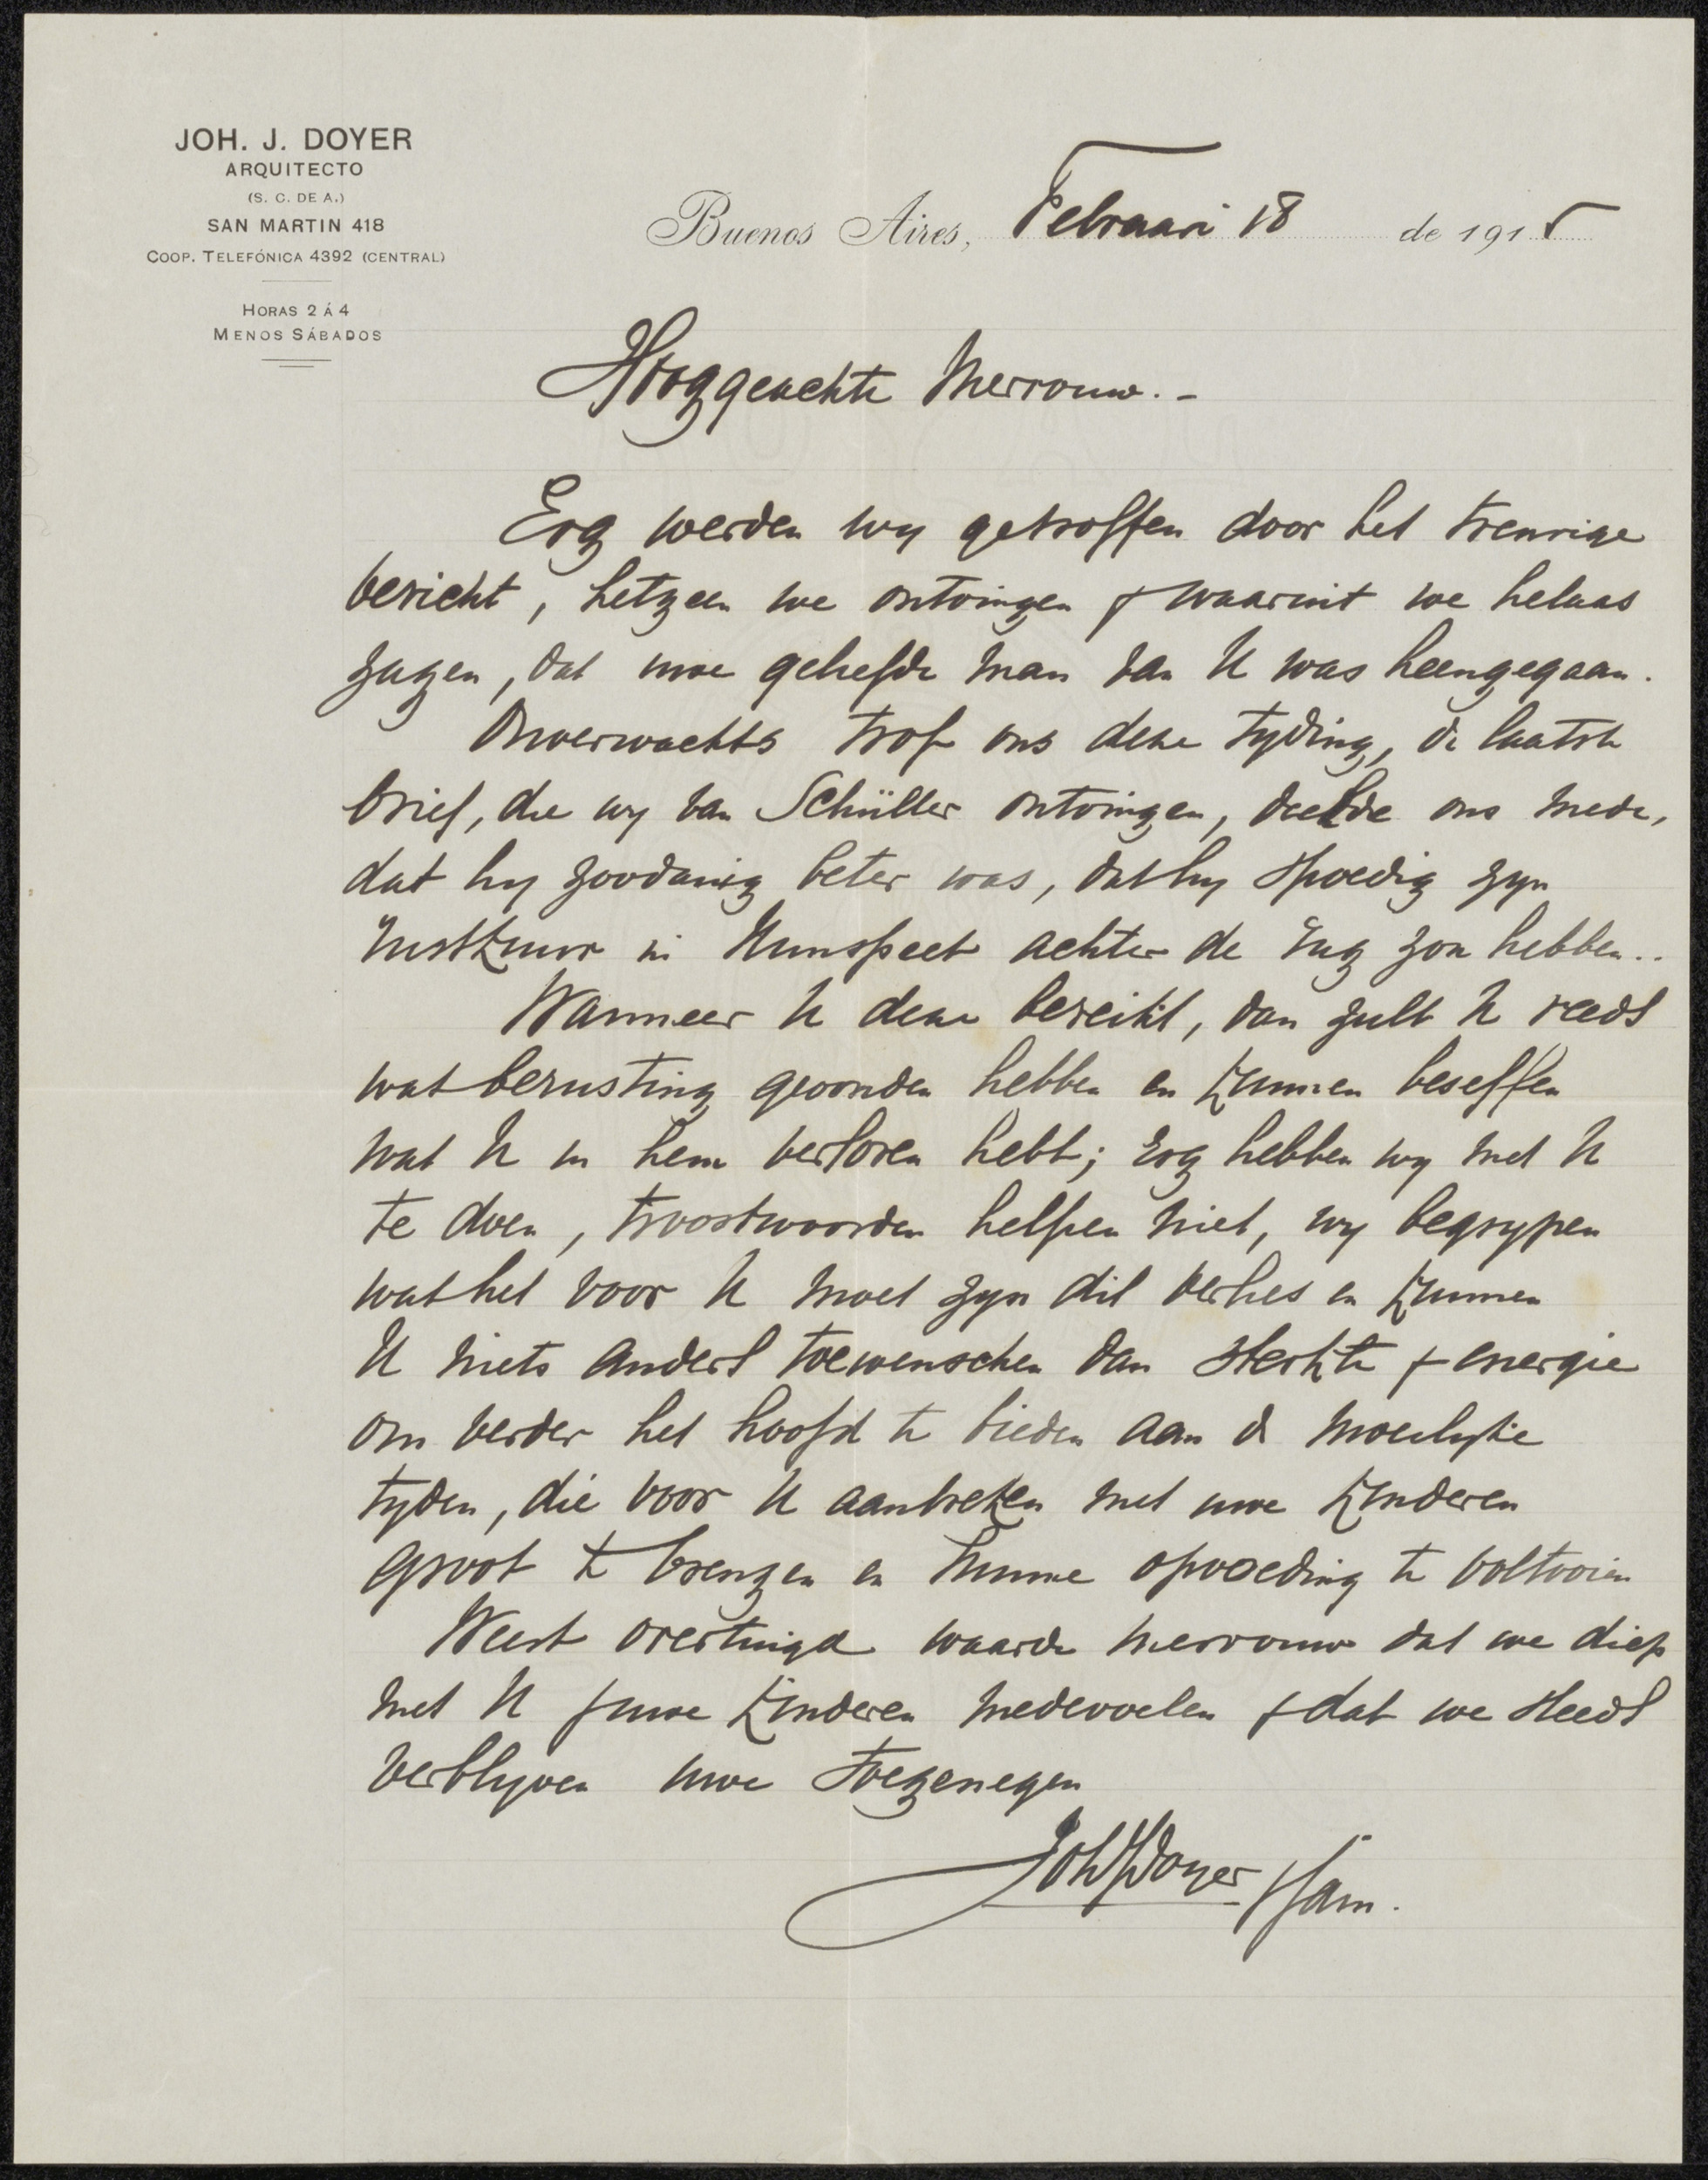 JOH. J. DOYER
ARQUITECTO
(S. C. DE A.)
SAN MARTIN 418
COOP. TELEFÓNICA 4392 (CENTRAL)
HORAS 2 Á 4
MENOS SÁBADOS
Buenos Aires, Februari 18 de 1915
Hooggeachte Mevrouw. -
Erg werden wy getroffen door het treurige
bericht, hetgeen we ontvingen & waaruit we helaas
zagen, dat uwe geliefde man van U was heengegaan.
Onverwachts trof ons deze tyding, de laatste
brief, die wy van Schüller ontvingen, deelde ons mede,
dat hy zoodanig beter was, dat hy spoedig zyn
rustkuur in Nunspeet achter de rug zou hebben..
Wanneer U deze bereikt, dan zult U reeds
wat berusting gevonden hebben en kunnen beseffen
wat U in hem verloren hebt; Erg hebben wy met U
te doen, troostwoorden helpen niet, wy begrypen
wat het voor U moet zyn dit verlies en kunnen
U niets anders toewenschen dan sterkte & energie
om verder het hoofd te bieden aan de moeilyke
tyden, die voor U aanbreken met uwe kinderen
groot te brengen en hunne opvoeding te voltooien
Weest overtuigd waarde mevrouw dat we diep
met U & uwe kinderen medevoelen & dat we steeds
verblyven uwe toegenegen
Joh J Doyer & fam.